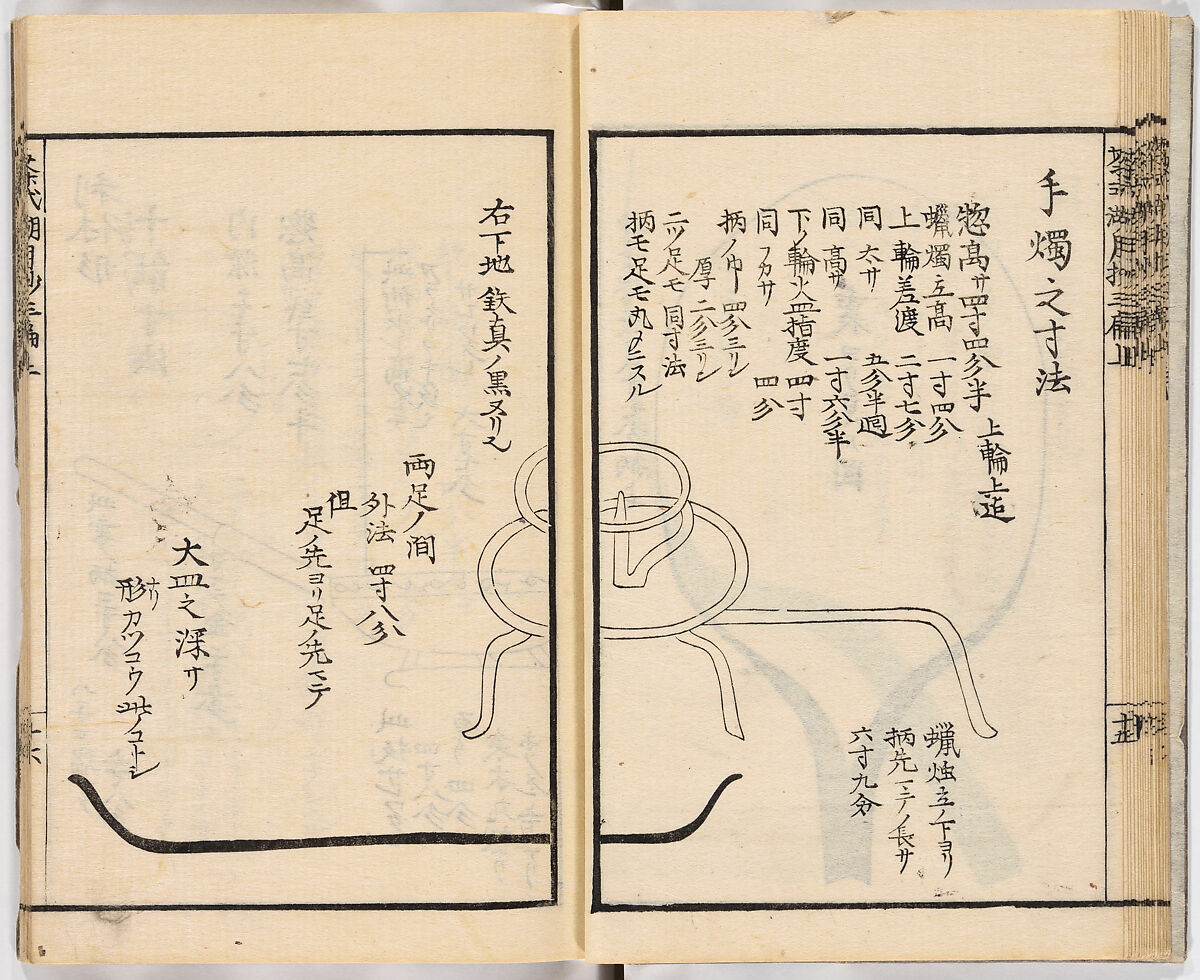 手燭之寸法
惣高サ四寸四分半
上輪上迠
蠟燭立高 一寸四分
上輪差渡 二寸七分
同 太サ 五分半囘
同 高サ 一寸六分半
下ノ輪火皿指度 四寸
同 フカサ 四分
柄ノ巾 四分三リン
厚 二分三リン
二ツ足モ 同寸法
柄モ足モ丸メニスル
蠟燭立ノ下ヨリ
柄先マテノ長サ
六寸九分
十五
右下地 鉄真ノ黒ヌリ也
両足ノ間
外法 四寸八分
但
足ノ先ヨリ足ノ先マテ
大皿之深サ
形カツコウ此ノコトシ
十六